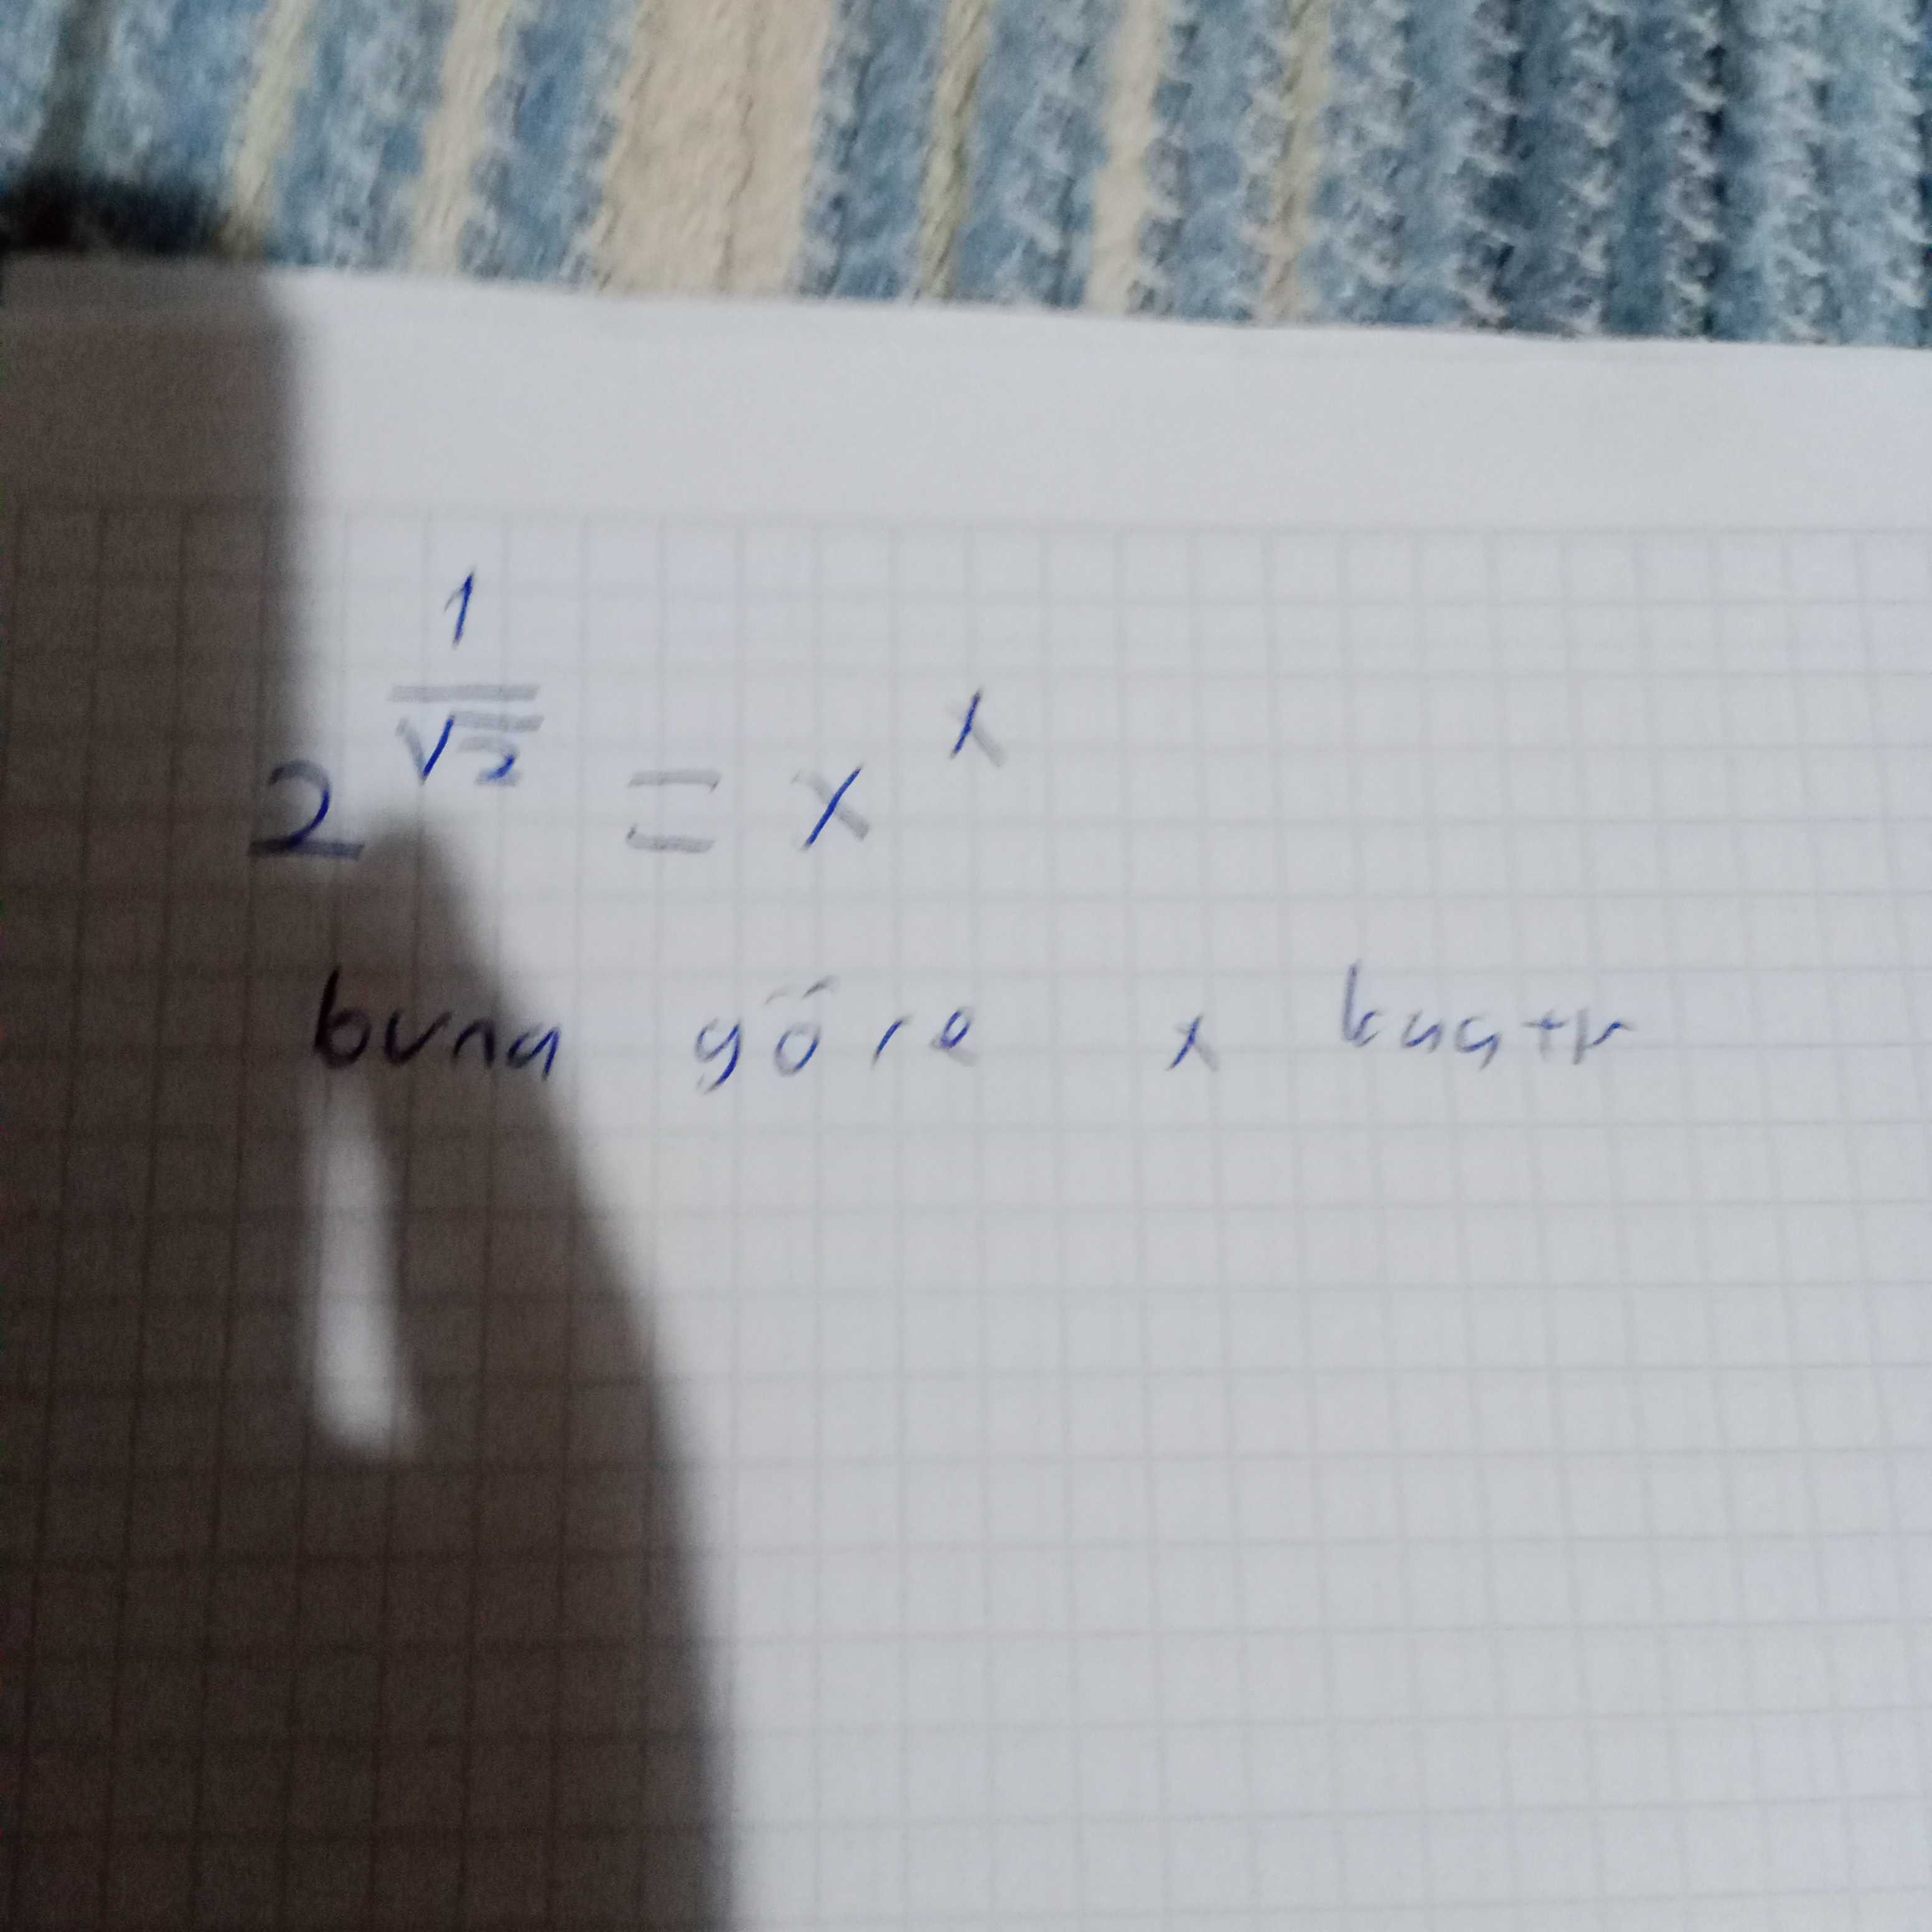 2^(1/√2) = x^x
buna göre x kaçtır